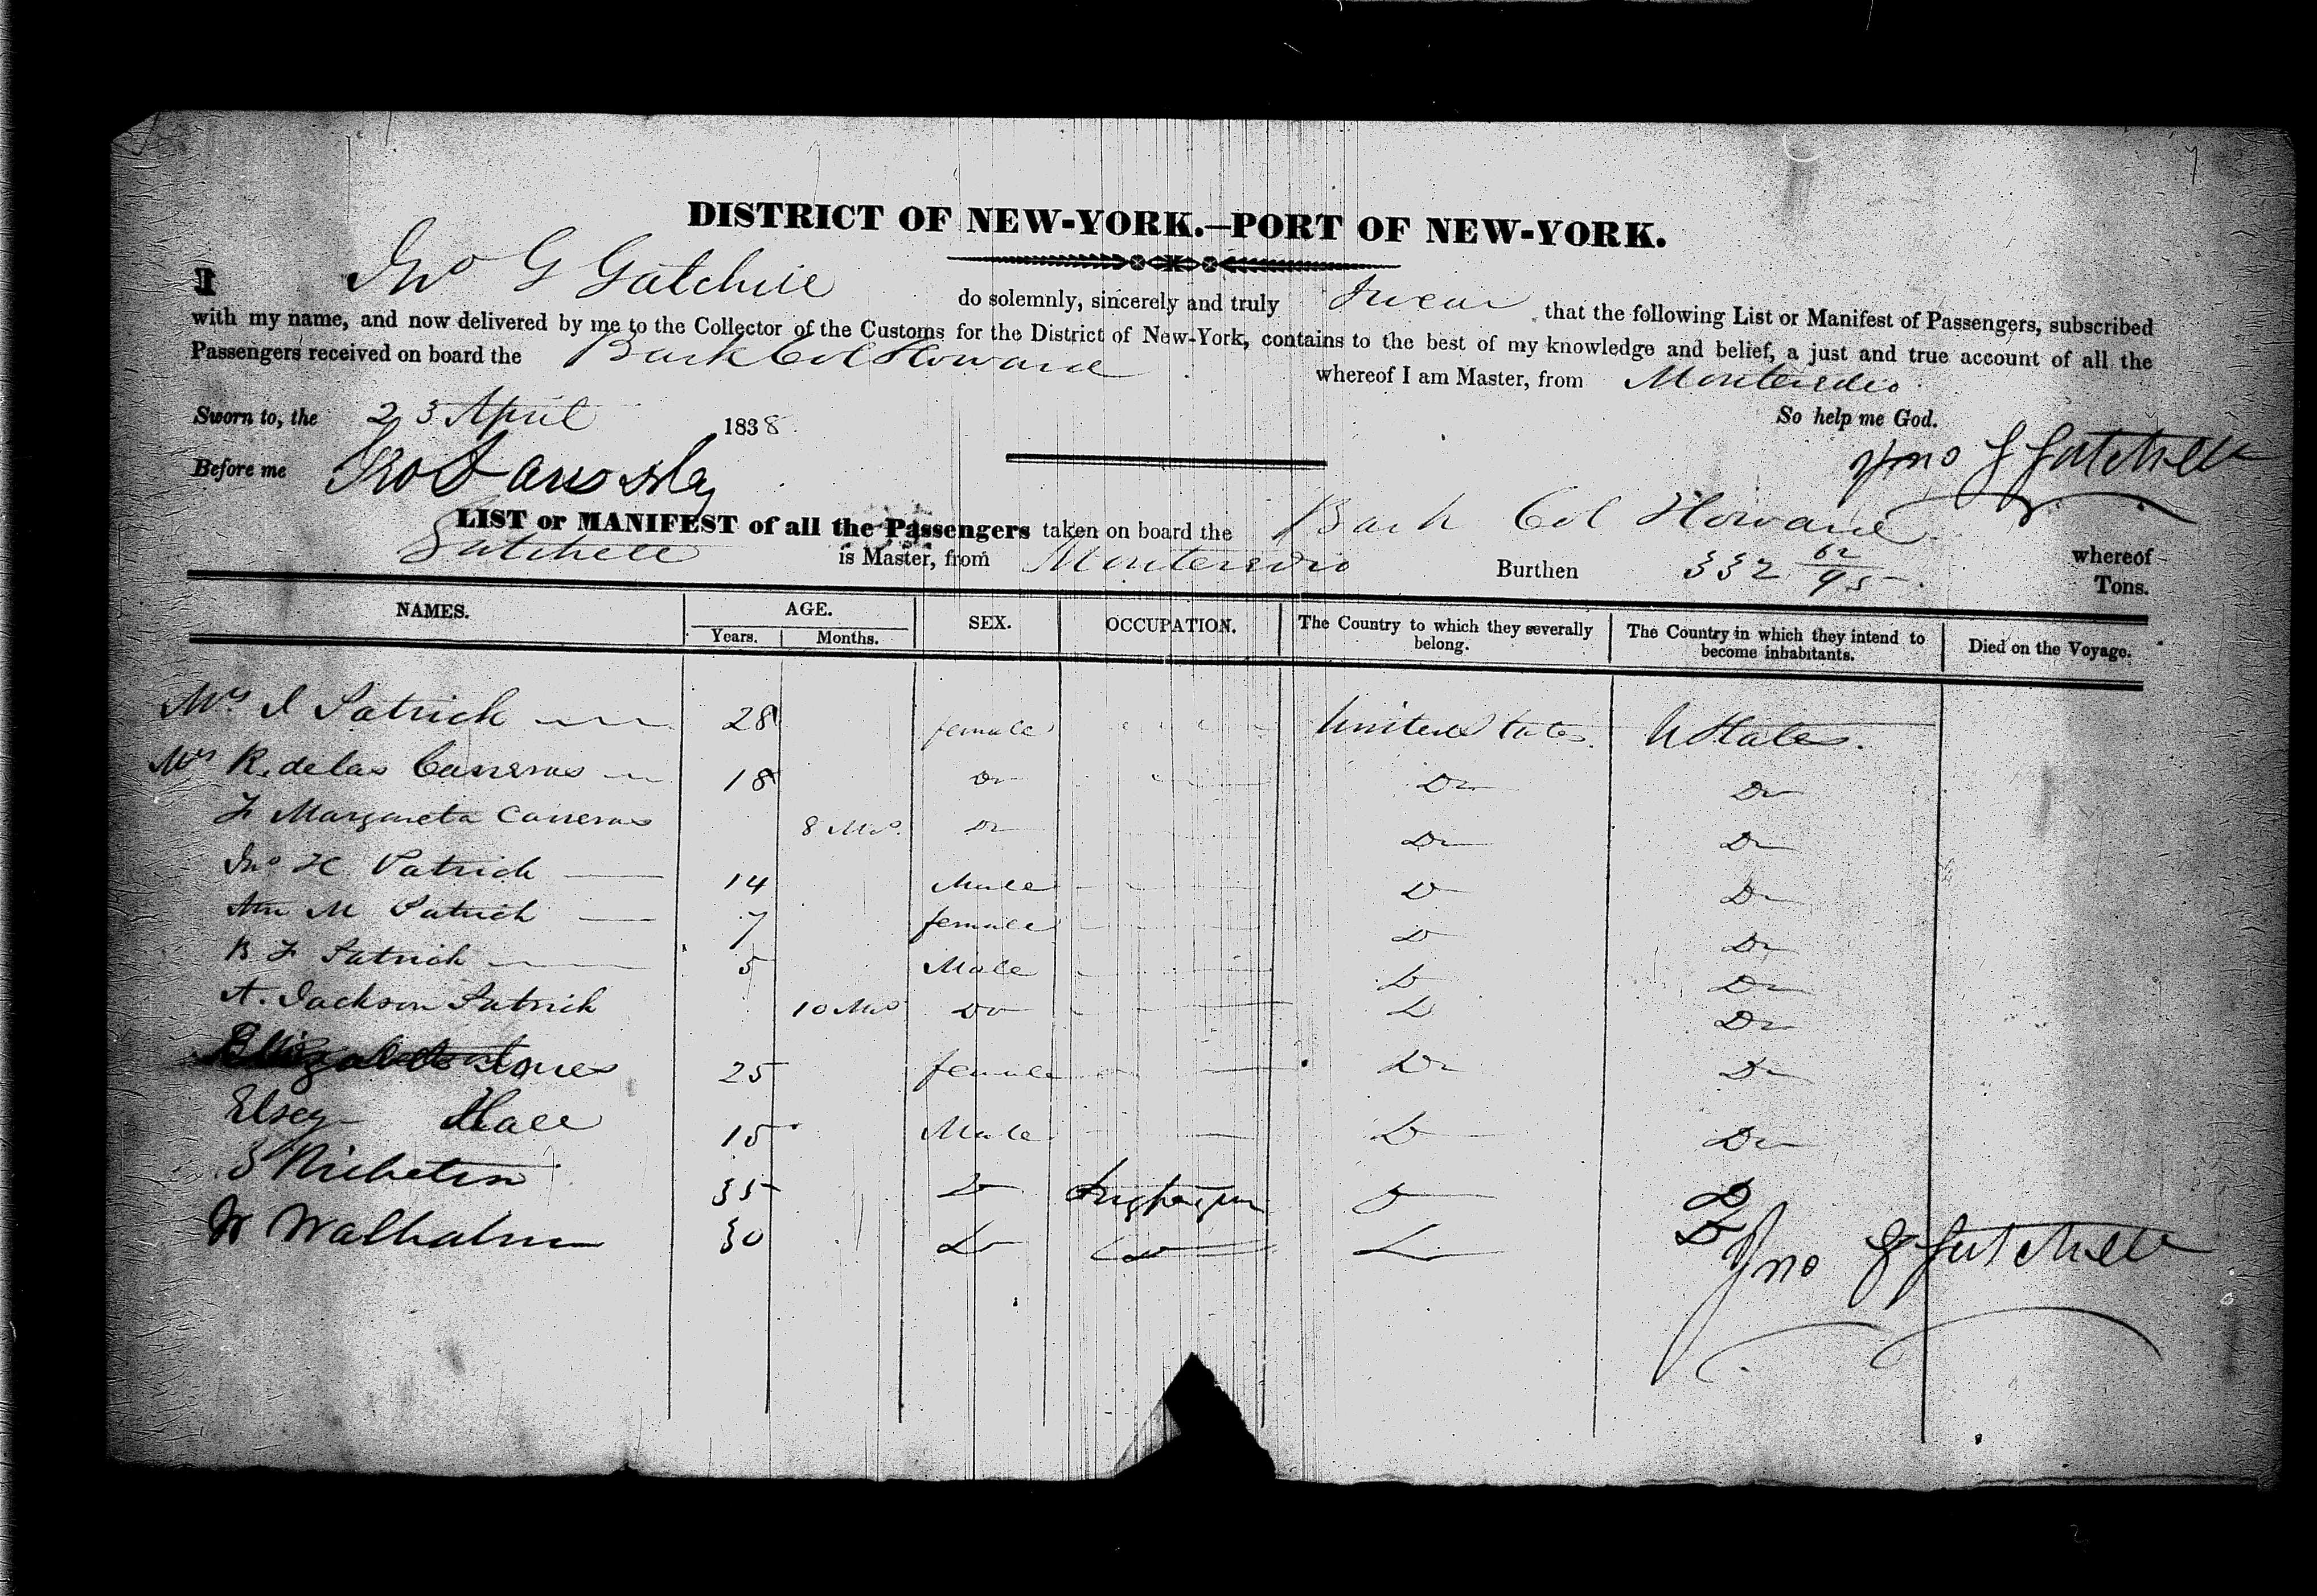 DISTRICT OF NEW-YORK.—PORT OF NEW-YORK.
I Jno G Gatchell do solemnly, sincerely and truly Swear that the following List or Manifest of Passengers, subscribed
with my name, and now delivered by me to the Collector of the Customs for the District of New-York, contains to the best of my knowledge and belief, a just and true account of all the
Passengers received on board the Bark Col Howard whereof I am Master, from Montevideo
So help me God.
Sworn to, the 23 April 1838
Before me
Jno G Gatchell
LIST or MANIFEST of all the Passengers taken on board the Bark Col Howard whereof
Gatchell is Master, from Montevideo Burthen 332 62/95 Tons.
NAMES. AGE. SEX. OCCUPATION. The Country to which they severally belong. The Country in which they intend to become inhabitants. Died on the Voyage.
Years. Months.
Mrs I Patrick 28 female United States. U States.
Mrs R. de las Carreras 18 Do Do Do
F Margareta Carreras 8 Mos. Do Do Do
Jno H Patrick 14 Male Do Do
Ann M Patrick 7 female Do Do
B F Patrick 5 Male Do Do
A. Jackson Patrick 10 Mos Do Do Do
Elizabeth Jones 25 female Do Do
Elsey Hall 15 Male Do Do
35 Do Do Do
30 Do Do Do Do
Jno G Gatchell